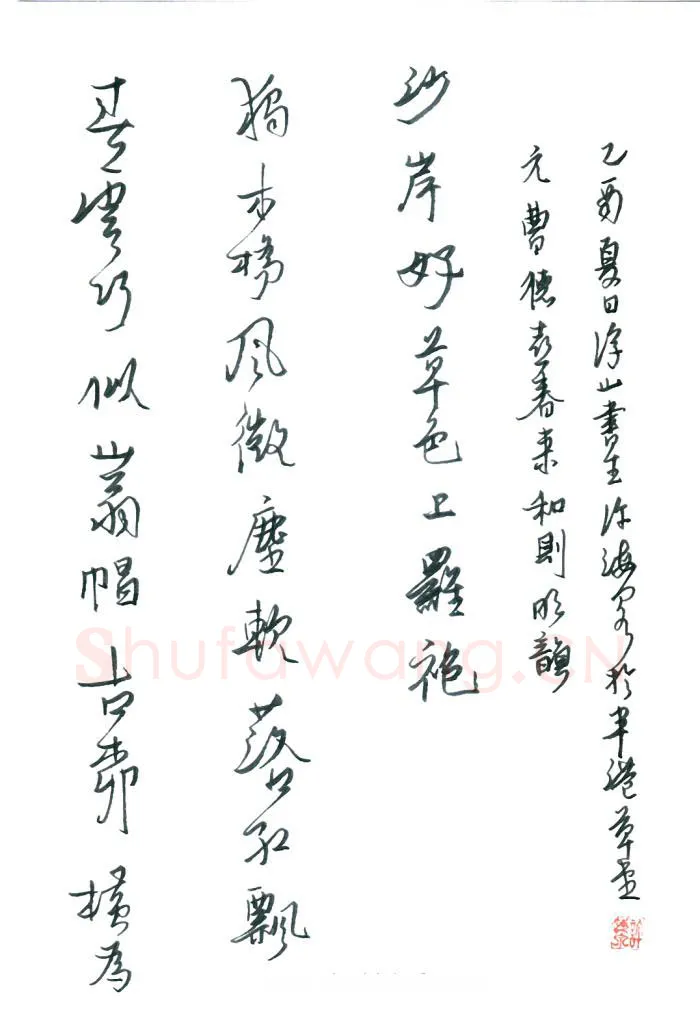 春雲巧似山翁帽古柳橫為
獨木橋風微塵軟落紅飄
沙岸好草色上羅袍
元曹德喜春来和則明韻
乙酉夏日浮山書生许海於半港草堂
Shufawang.CN